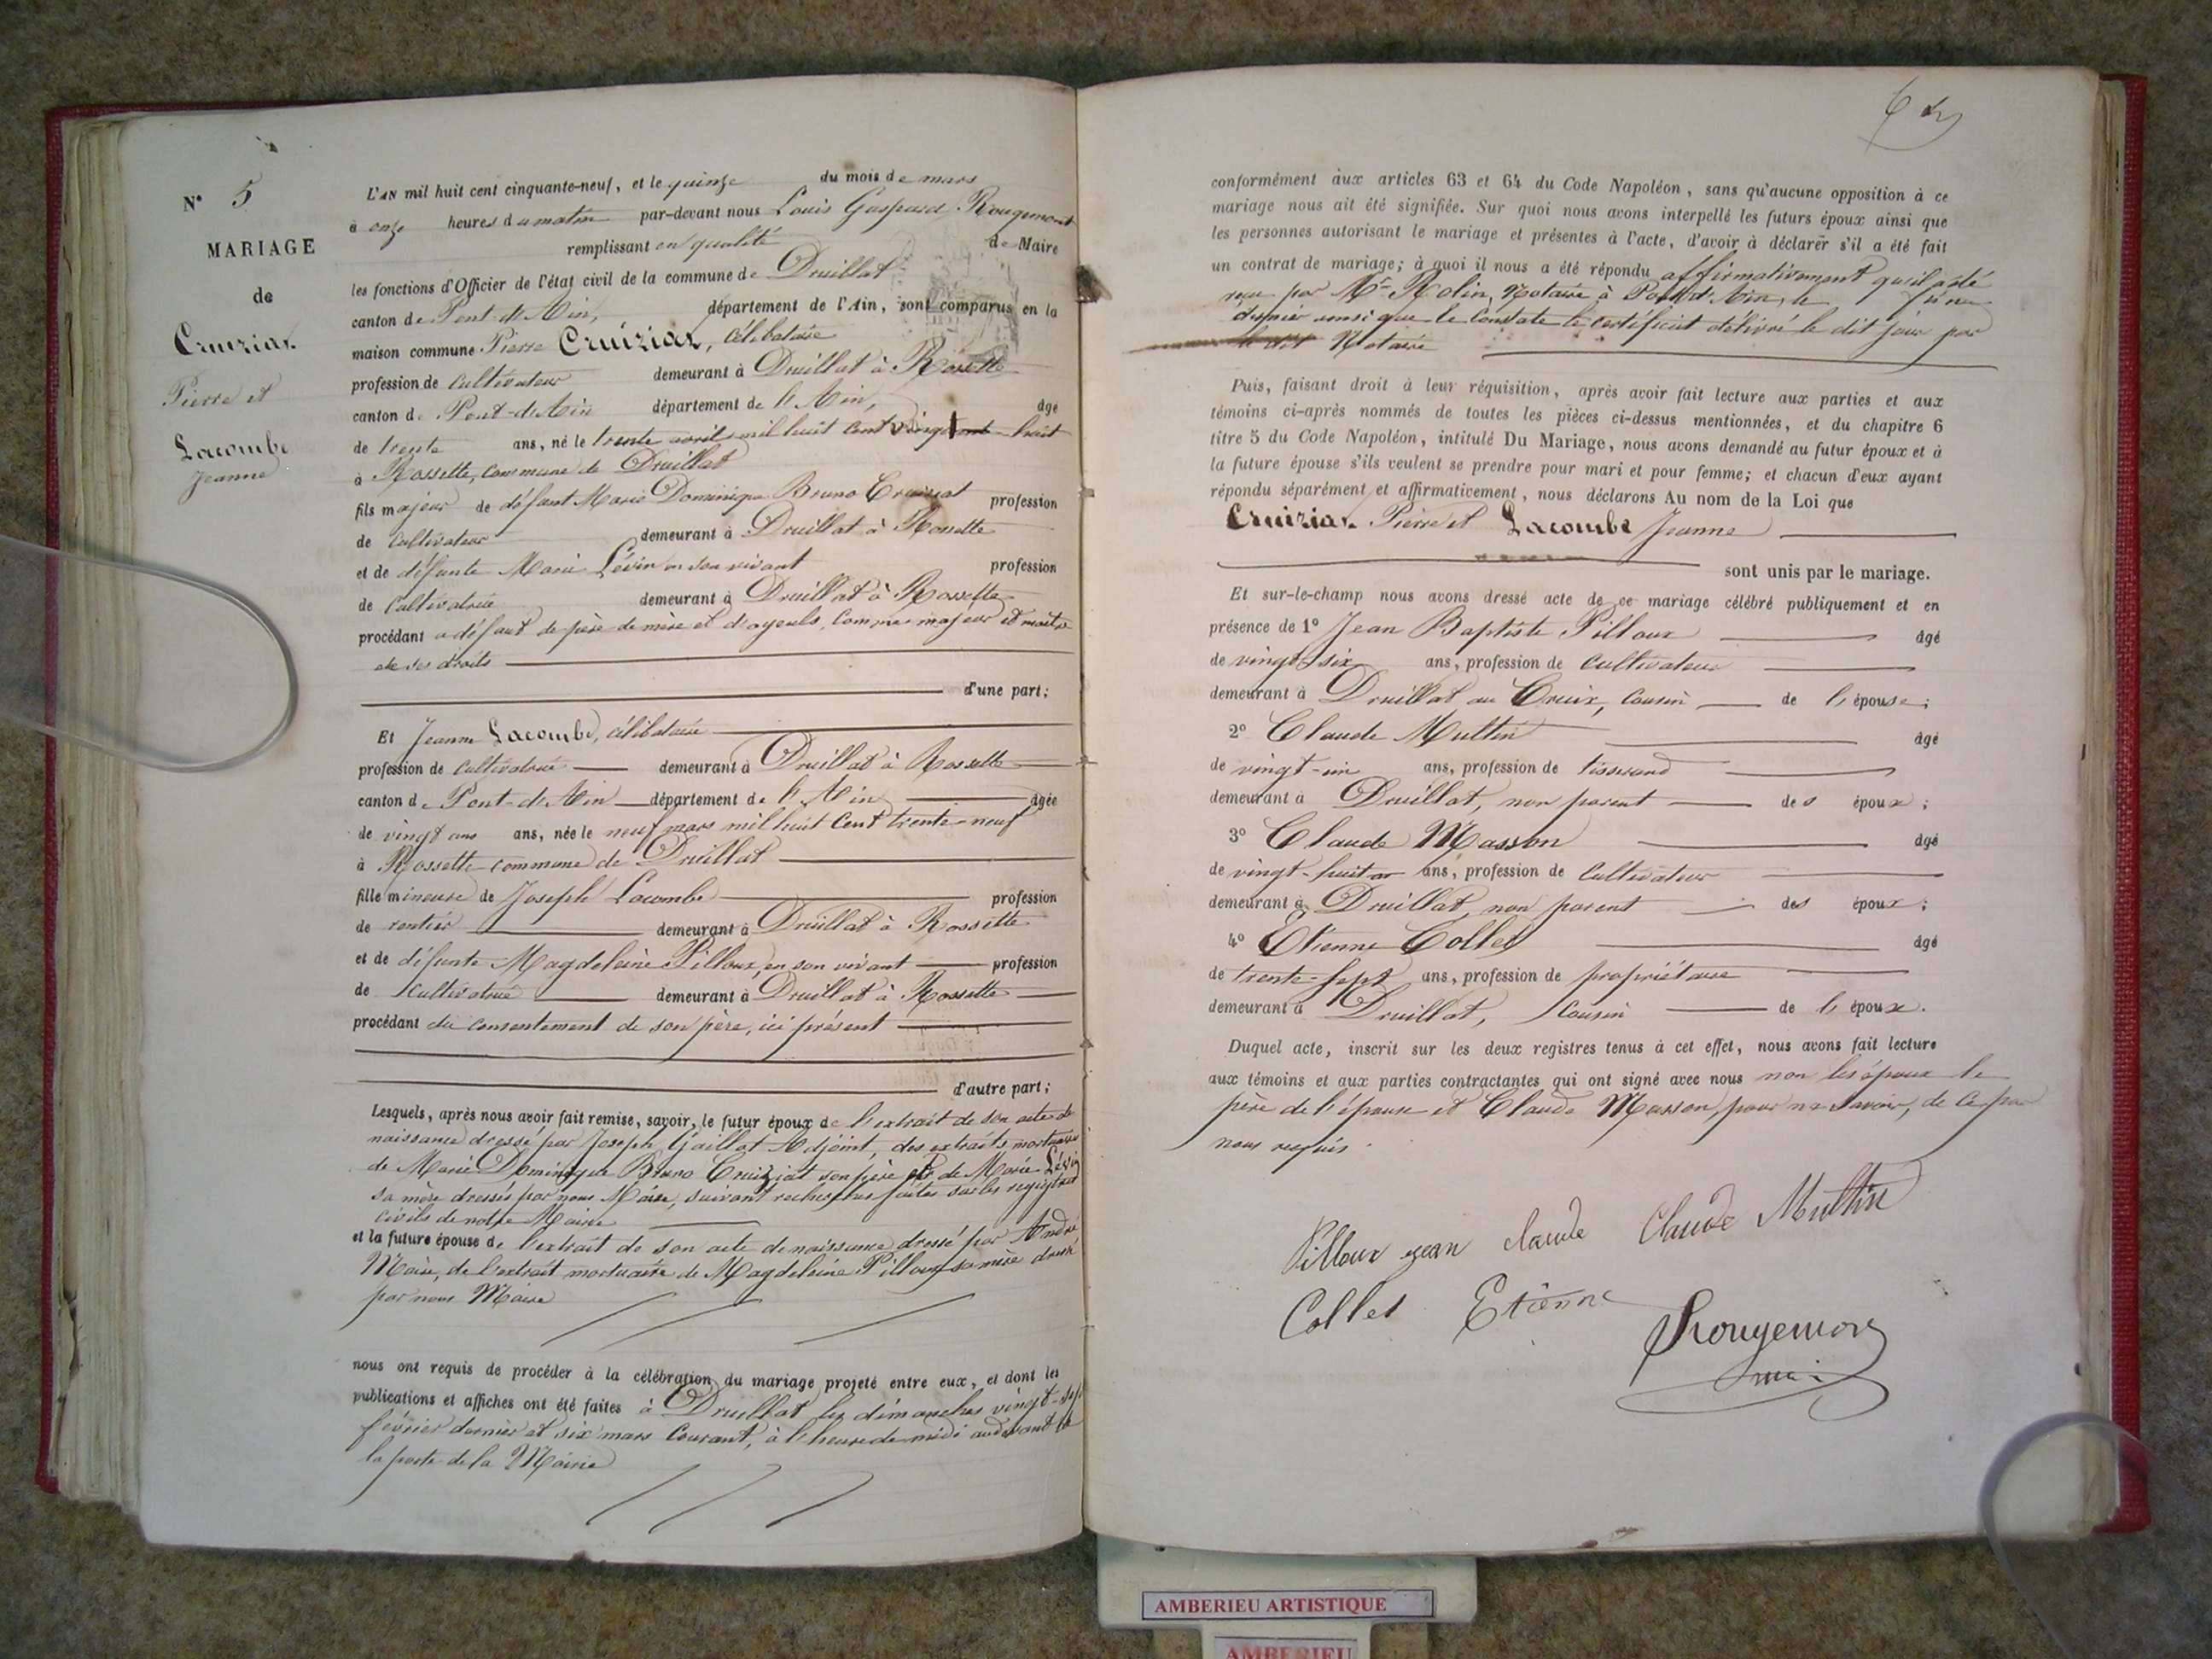 N° 5
MARIAGE
de
Cruiziat
Pierre et
Lacombe
Jeanne
L'AN mil huit cent cinquante-neuf, et le quinze du mois de mars
à onze heures du matin par-devant nous Louis Gaspard Rougemont
remplissant en qualité de Maire
les fonctions d'Officier de l'état civil de la commune de Druillat
canton de Pont-d'Ain, département de l'Ain, sont comparus en la
maison commune Pierre Cruiziat, célibataire
profession de cultivateur demeurant à Druillat à Rossette
canton de Pont-d'Ain département de l'Ain, âgé
de trente ans, né le trente avril mil huit cent vingt huit
à Rossette, commune de Druillat
fils majeur de défunt Marie Dominique Bruno Cruiziat profession
de cultivateur demeurant à Druillat à Rossette
et de défunte Marie Lévin en son vivant profession
de cultivatrice demeurant à Druillat à Rossette
procédant à défaut de père de mère et d'ayeuls, comme majeur et maître
de ses droits
d'une part;
Et Jeanne Lacombe, célibataire
profession de cultivatrice demeurant à Druillat à Rossette
canton de Pont-d'Ain département de l'Ain âgée
de vingt ans ans, née le neuf mars mil huit cent trente-neuf
à Rossette commune de Druillat
fille mineure de Joseph Lacombe profession
de rentier demeurant à Druillat à Rossette
et de défunte Magdeleine Pilloux, en son vivant profession
de cultivatrice demeurant à Druillat à Rossette
procédant du consentement de son père, ici présent
d'autre part;
Lesquels, après nous avoir fait remise, savoir, le futur époux de l'extrait de son acte de
naissance dressé par Joseph Gaillat Adjoint, des extraits mortuaires
de Marie Dominique Bruno Cruiziat son père et de Marie Lévin
sa mère dressés par nous Maire, suivant recherches faites sur les registres
civils de notre Mairie
et la future épouse de l'extrait de son acte de naissance dressé par André
Maire, de l'extrait mortuaire de Magdeleine Pilloux sa mère dressé
par nous Maire
nous ont requis de procéder à la célébration du mariage projeté entre eux, et dont les
publications et affiches ont été faites à Druillat les dimanches vingt-sept
février dernier et six mars courant, à l'heure de midi au devant de
la porte de la Mairie
conformément aux articles 63 et 64 du Code Napoléon, sans qu'aucune opposition à ce
mariage nous ait été signifiée. Sur quoi nous avons interpellé les futurs époux ainsi que
les personnes autorisant le mariage et présentes à l'acte, d'avoir à déclarer s'il a été fait
un contrat de mariage; à quoi il nous a été répondu affirmativement qu'il a été
reçu par Me Rolin, Notaire à Pont d'Ain, le
dernier ainsi que le constate le certificat délivré le dit jour par
le dit Notaire
Puis, faisant droit à leur réquisition, après avoir fait lecture aux parties et aux
témoins ci-après nommés de toutes les pièces ci-dessus mentionnées, et du chapitre 6
titre 5 du Code Napoléon, intitulé Du Mariage, nous avons demandé au futur époux et à
la future épouse s'ils veulent se prendre pour mari et pour femme; et chacun d'eux ayant
répondu séparément et affirmativement, nous déclarons Au nom de la Loi que
Cruiziat Pierre et Lacombe Jeanne
sont unis par le mariage.
Et sur-le-champ nous avons dressé acte de ce mariage célébré publiquement et en
présence de 1° Jean Baptiste Pilloux âgé
de vingt-six ans, profession de cultivateur
demeurant à Druillat au Creux, cousin de l'épouse;
2° Claude Multin âgé
de vingt-un ans, profession de tisserand
demeurant à Druillat, non parent des époux;
3° Claude Masson âgé
de vingt-huit ans, profession de cultivateur
demeurant à Druillat, non parent des époux;
4° Etienne Collet âgé
de trente-sept ans, profession de propriétaire
demeurant à Druillat, cousin de l'époux.
Duquel acte, inscrit sur les deux registres tenus à cet effet, nous avons fait lecture
aux témoins et aux parties contractantes qui ont signé avec nous non les époux le
père de l'épouse et Claude Masson, pour ne savoir, de ce par
nous requis.
Pilloux jean claude Claude Multin
Collet Etienne
Rougemont
AMBERIEU ARTISTIQUE
AMBERIEU